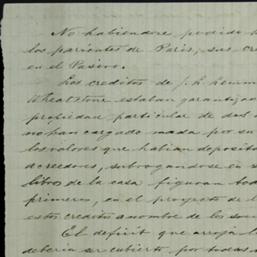 No habiendose podido
los parientes de Paris, sus cre
en el Pasivo.
Los creditos de J. L. Lemm
Wheatstone estaban garantizad
propiedad particular de
no han cargado nada por su
los valores que habian deposit
acreedores, subrogandose en
libros de la casa figuran tod
primeros, en el proyecto de l
estos creditos a nombre de los
El deficit que arroja l
deberia ser cubierto, por todas